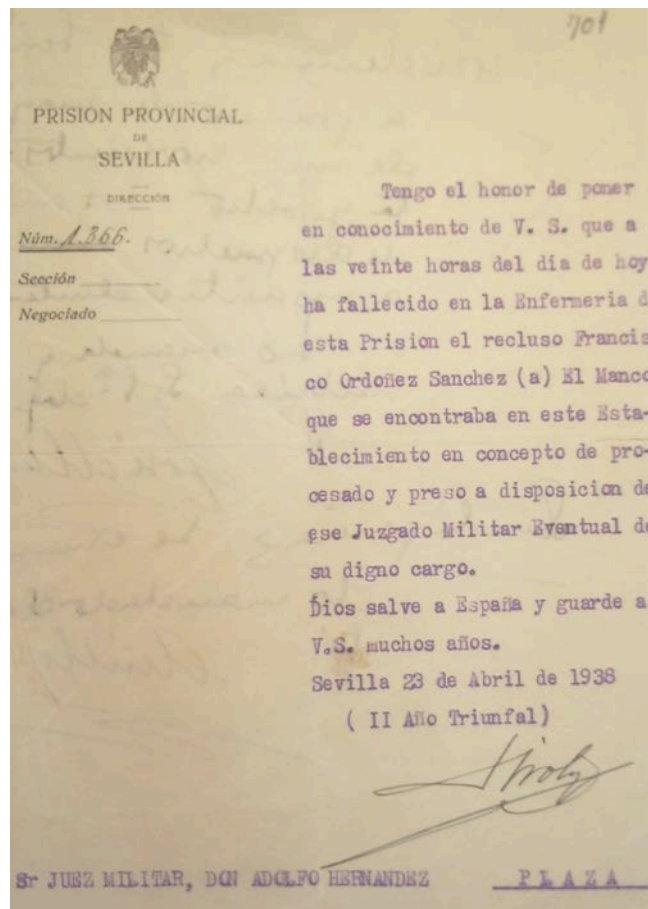 701
PRISION PROVINCIAL
DE
SEVILLA
DIRECCIÓN
Núm. 1.366.
Sección
Negociado
Tengo el honor de poner
en conocimiento de V. S. que a
las veinte horas del dia de hoy
ha fallecido en la Enfermeria d
esta Prision el recluso Francis
co Ordoñez Sanchez (a) El Manco
que se encontraba en este Esta-
blecimiento en concepto de pro-
cesado y preso a disposicion de
ese Juzgado Militar Eventual de
su digno cargo.
Dios salve a España y guarde a
V.S. muchos años.
Sevilla 23 de Abril de 1938
( II Año Triunfal)
Sr JUEZ MILITAR, DON ADOLFO HERNANDEZ PLAZA